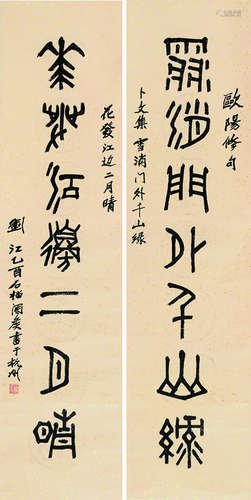 歐陽修句
雪消門外千山綠
卜文集 雪消门外千山綠
花發江边二月晴
花發江邊二月晴
劉江乙酉石榴書于杭州